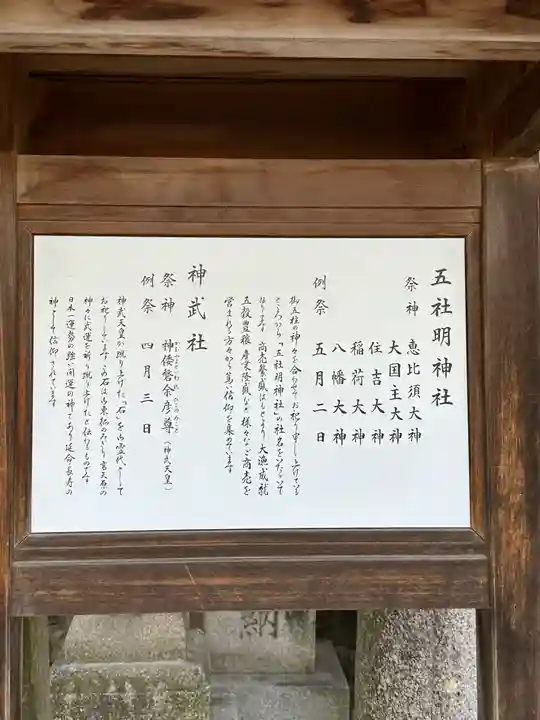 五社明神社
祭神 恵比須大神
大国主大神
住吉大神
稲荷大神
八幡大神
例祭 五月二日
御五柱の神々を合わせてお祀り申し上げている
ところから「五社明神社」の社名をいただいて
おります 商売繁盛はもとより大漁成就
五穀豊穣 産業隆盛など様々なご商売を
営まれる方々から篤い信仰を集めています
神武社
祭神 神倭磐余彦尊（神武天皇）
かむやまといわれひこのみこと
例祭 四月三日
神武天皇が蹴り上げた「石」を御神代として
お祀りしています この石は御東征のみぎり 高天原の
神々に武運を祈り蹴り上げたと伝わるものです
日本一運勢の強い開運の神であり延命長寿の
神として信仰されています
納